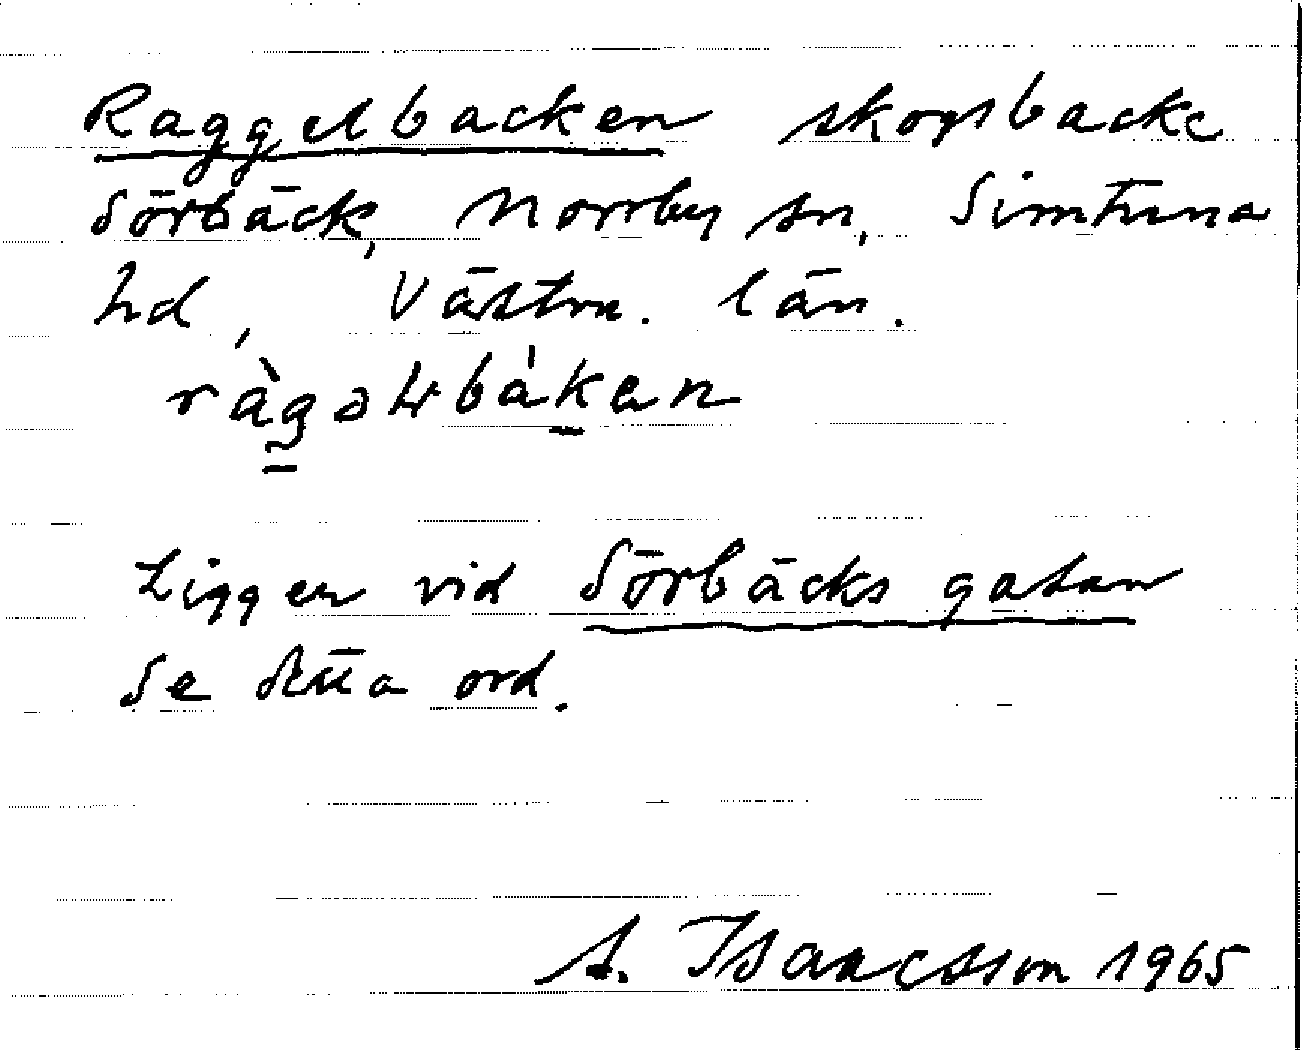 Raggelbacken skogsbacke
Sörbäck, Norrby sn, Simtuna
hd, Västm. län.
ràgəɫbàkən
Ligger vid Sörbäcks gatan
Se detta ord.
A. Isaacsson 1965